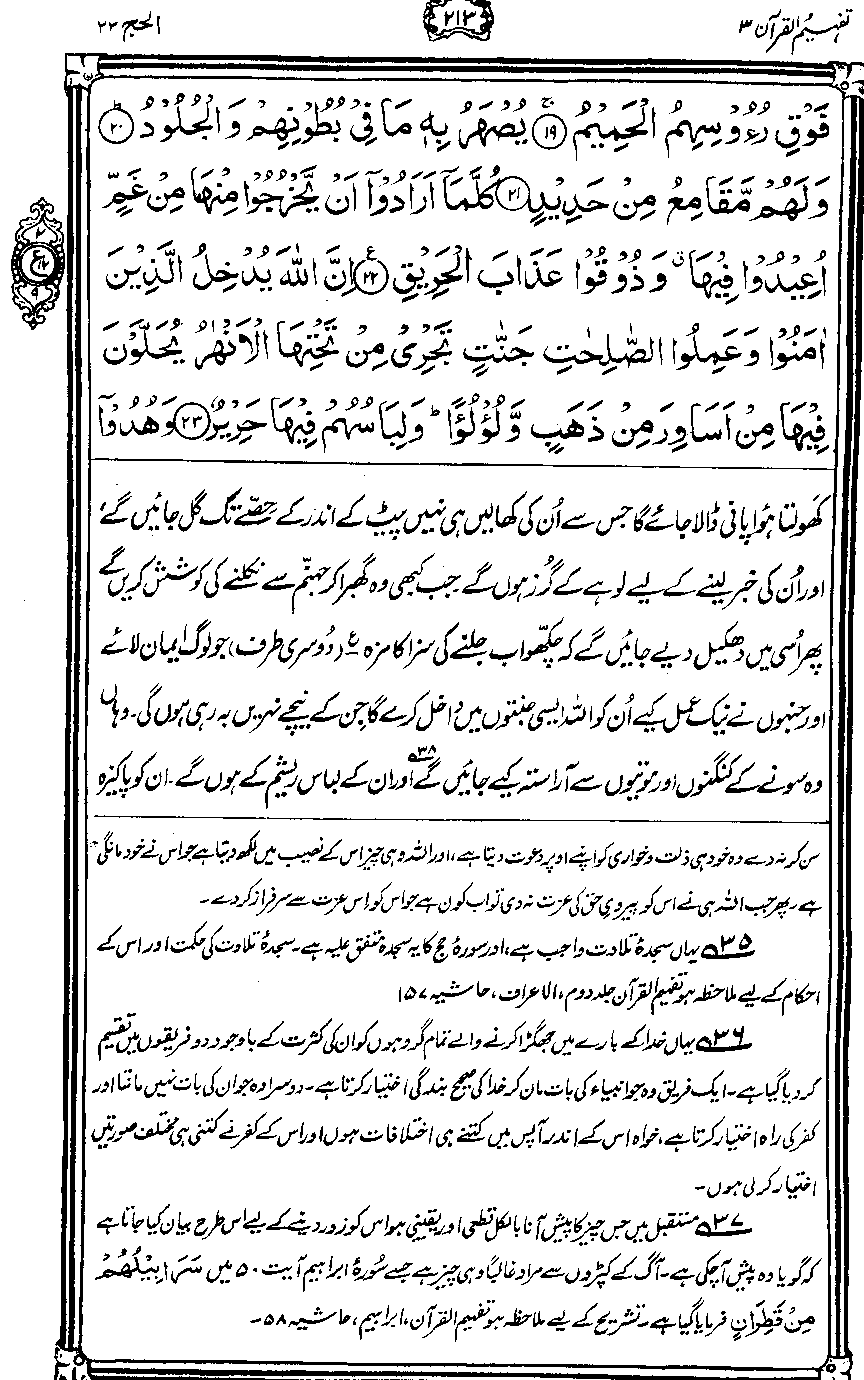 تفہیم القرآن ۳
۲۱۳
الحج ۲۲
فَوْقِ رُءُوْسِهِمُ الْحَمِيْمُ ﴿۱۹﴾ يُصْهَرُ بِهٖ مَا فِيْ بُطُوْنِهِمْ وَالْجُلُوْدُ ﴿۲۰﴾
وَلَهُمْ مَّقَامِعُ مِنْ حَدِيْدٍ ﴿۲۱﴾ كُلَّمَآ اَرَادُوْٓا اَنْ يَّخْرُجُوْا مِنْهَا مِنْ غَمٍّ
اُعِيْدُوْا فِيْهَا ۤ وَذُوْقُوْا عَذَابَ الْحَرِيْقِ ﴿۲۲﴾ اِنَّ اللّٰهَ يُدْخِلُ الَّذِيْنَ
اٰمَنُوْا وَعَمِلُوا الصّٰلِحٰتِ جَنّٰتٍ تَجْرِيْ مِنْ تَحْتِهَا الْاَنْهٰرُ يُحَلَّوْنَ
فِيْهَا مِنْ اَسَاوِرَ مِنْ ذَهَبٍ وَّلُؤْلُؤًا ؕ وَلِبَاسُهُمْ فِيْهَا حَرِيْرٌ ﴿۲۳﴾ وَهُدُوْٓا
کھولتا ہوا پانی ڈالا جائے گا جس سے اُن کی کھالیں ہی نہیں پیٹ کے اندر کے حصّے تک گل جائیں گے،
اور اُن کی خبر لینے کے لیے لوہے کے گُرز ہوں گے۔ جب کبھی وہ گھبرا کر جہنّم سے نکلنے کی کوشش کریں گے
پھر اُسی میں دھکیل دیے جائیں گے کہ چکھو اب جلنے کی سزا کا مزہ ؏ (دُوسری طرف) جو لوگ ایمان لائے
اور جنہوں نے نیک عمل کیے اُن کو اللہ ایسی جنتوں میں داخل کرے گا جن کے نیچے نہریں بہ رہی ہوں گی۔ وہاں
وہ سونے کے کنگنوں اور موتیوں سے آراستہ کیے جائیں گے ۳۸ اور ان کے لباس ریشم کے ہوں گے۔ ان کو پاکیزہ
سن کر نہ دے وہ خود ہی ذلت و خواری کو اپنے اوپر دعوت دیتا ہے، اور اللہ وہی چیز اس کے نصیب میں لکھ دیتا ہے جو اس نے خود مانگی
ہے۔ پھر جب اللہ ہی نے اس کو پیروی حق کی عزت نہ دی تو اب کون ہے جو اس کو اس عزت سے سرفراز کر دے۔
۳۵ یہاں سجدۂ تلاوت واجب ہے، اور سورۂ حج کا یہ سجدہ متفق علیہ ہے۔ سجدۂ تلاوت کی حکمت اور اس کے
احکام کے لیے ملاحظہ ہو تفہیم القرآن جلد دوم، الاعراف، حاشیہ ۱۵۷
۳۶ یہاں خدا کے بارے میں جھگڑا کرنے والے تمام گروہوں کو ان کی کثرت کے باوجود دو فریقوں میں تقسیم
کر دیا گیا ہے۔ ایک فریق وہ جو انبیاء کی بات مان کر خدا کی صحیح بندگی اختیار کرتا ہے۔ دوسرا وہ جو ان کی بات نہیں مانتا اور
کفر کی راہ اختیار کرتا ہے، خواہ اس کے اندر آپس میں کتنے ہی اختلافات ہوں اور اس کے کفر نے کتنی ہی مختلف صورتیں
اختیار کر لی ہوں۔
۳۷ مستقبل میں جس چیز کا پیش آنا بالکل قطعی اور یقینی ہو اس کو زور دینے کے لیے اس طرح بیان کیا جاتا ہے
کہ گویا وہ پیش آ چکی ہے۔ آگ کے کپڑوں سے مراد غالباً وہی چیز ہے جسے سُورۂ ابراہیم آیت ۵۰ میں سَرَابِيْلُهُمْ
مِنْ قَطِرَانٍ فرمایا گیا ہے۔ تشریح کے لیے ملاحظہ ہو تفہیم القرآن، ابراہیم، حاشیہ ۵۸۔